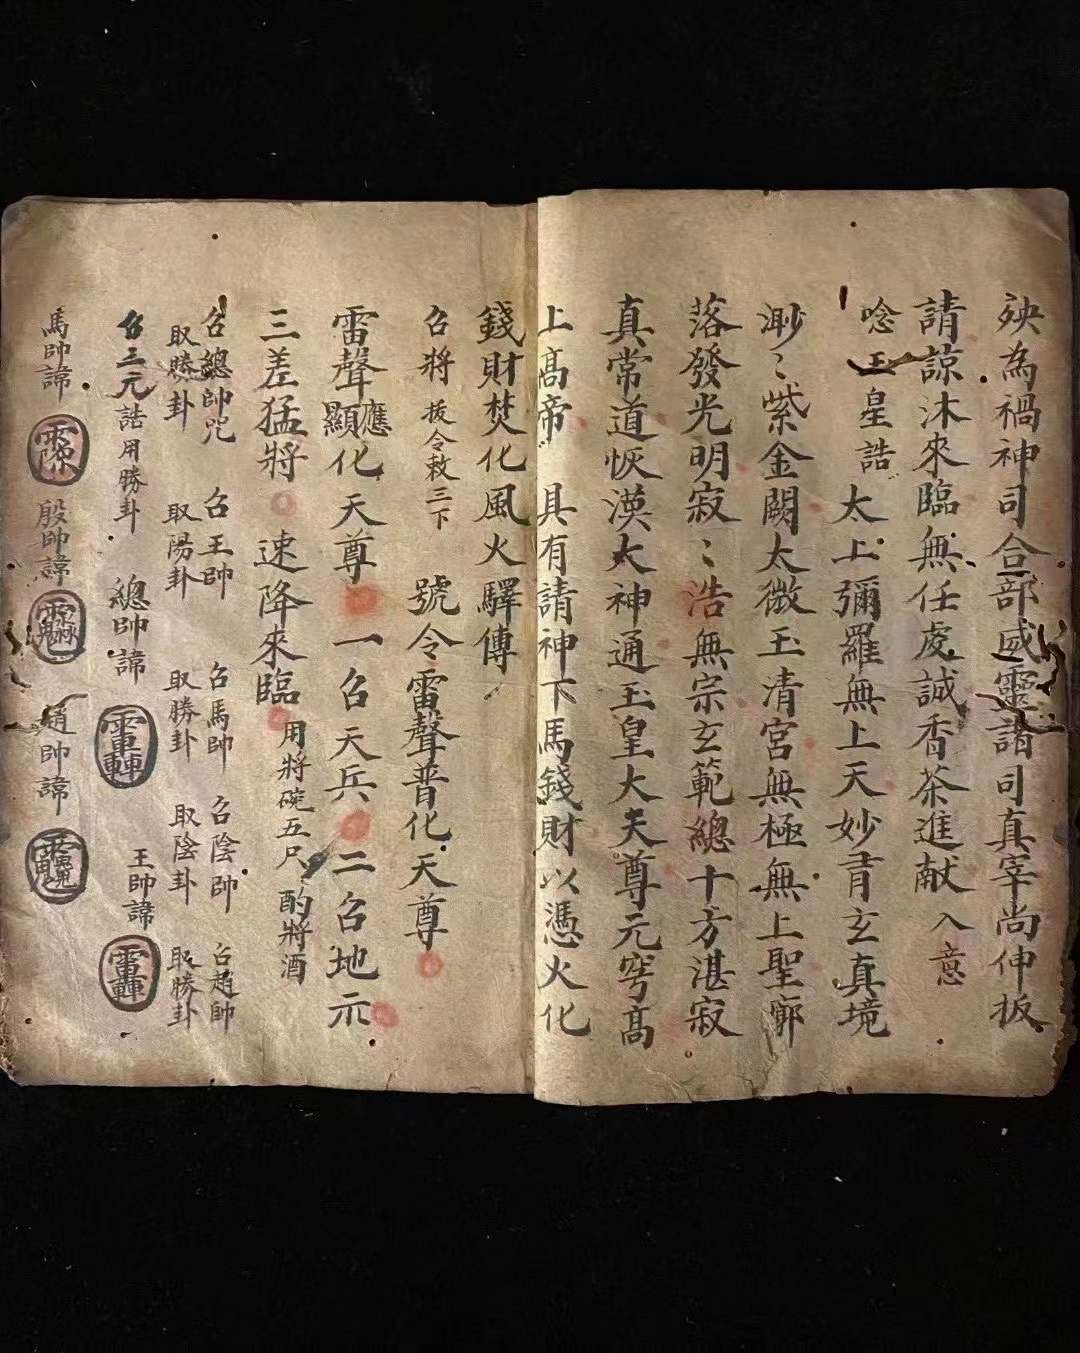 殃為禍神司合部威靈諸司真宰尚伸扳
請諒沐來臨無任虔誠香茶進献 入意
唸玉皇誥 太上彌羅無上天妙有玄真境
渺〻紫金闕太微玉清宮無極無上聖廓
落發光明寂〻浩無宗玄範總十方湛寂
真常道恢漠大神通玉皇大天尊元穹高
上高帝 具有請神下馬錢財以憑火化
錢財焚化風火驛傳
召將 扳令敕三下 號令雷聲普化天尊
雷聲應顯化天尊 一召天兵 二召地示
三差猛將 速降來臨 用將碗五只 酌將酒
召總帥咒 召王帥 召馬帥 召陰帥 召趙帥
取勝卦 取陽卦 取勝卦 取陰卦 取勝卦
召三元誥用勝卦 總帥諱 王帥諱
馬帥諱 殷帥諱 趙帥諱